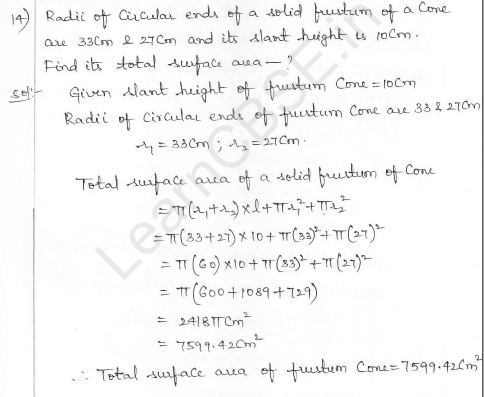 14) Radii of Circular ends of a solid frustum of a Cone
are 33Cm & 27Cm and its slant height is 10Cm.
Find its total surface area — ?
Sol:- Given slant height of frustum Cone = 10Cm
Radii of Circular ends of frustum Cone are 33 & 27Cm
r₁ = 33Cm ; r₂ = 27Cm.
Total surface area of a solid frustum of Cone
= π(r₁+r₂)×l+πr₁²+πr₂²
= π(33+27)×10+π(33)²+π(27)²
= π(60)×10+π(33)²+π(27)²
= π(600+1089+729)
= 2418πCm²
= 7599.42Cm²
∴ Total surface area of frustum Cone = 7599.42Cm²
LearnCBSE.in